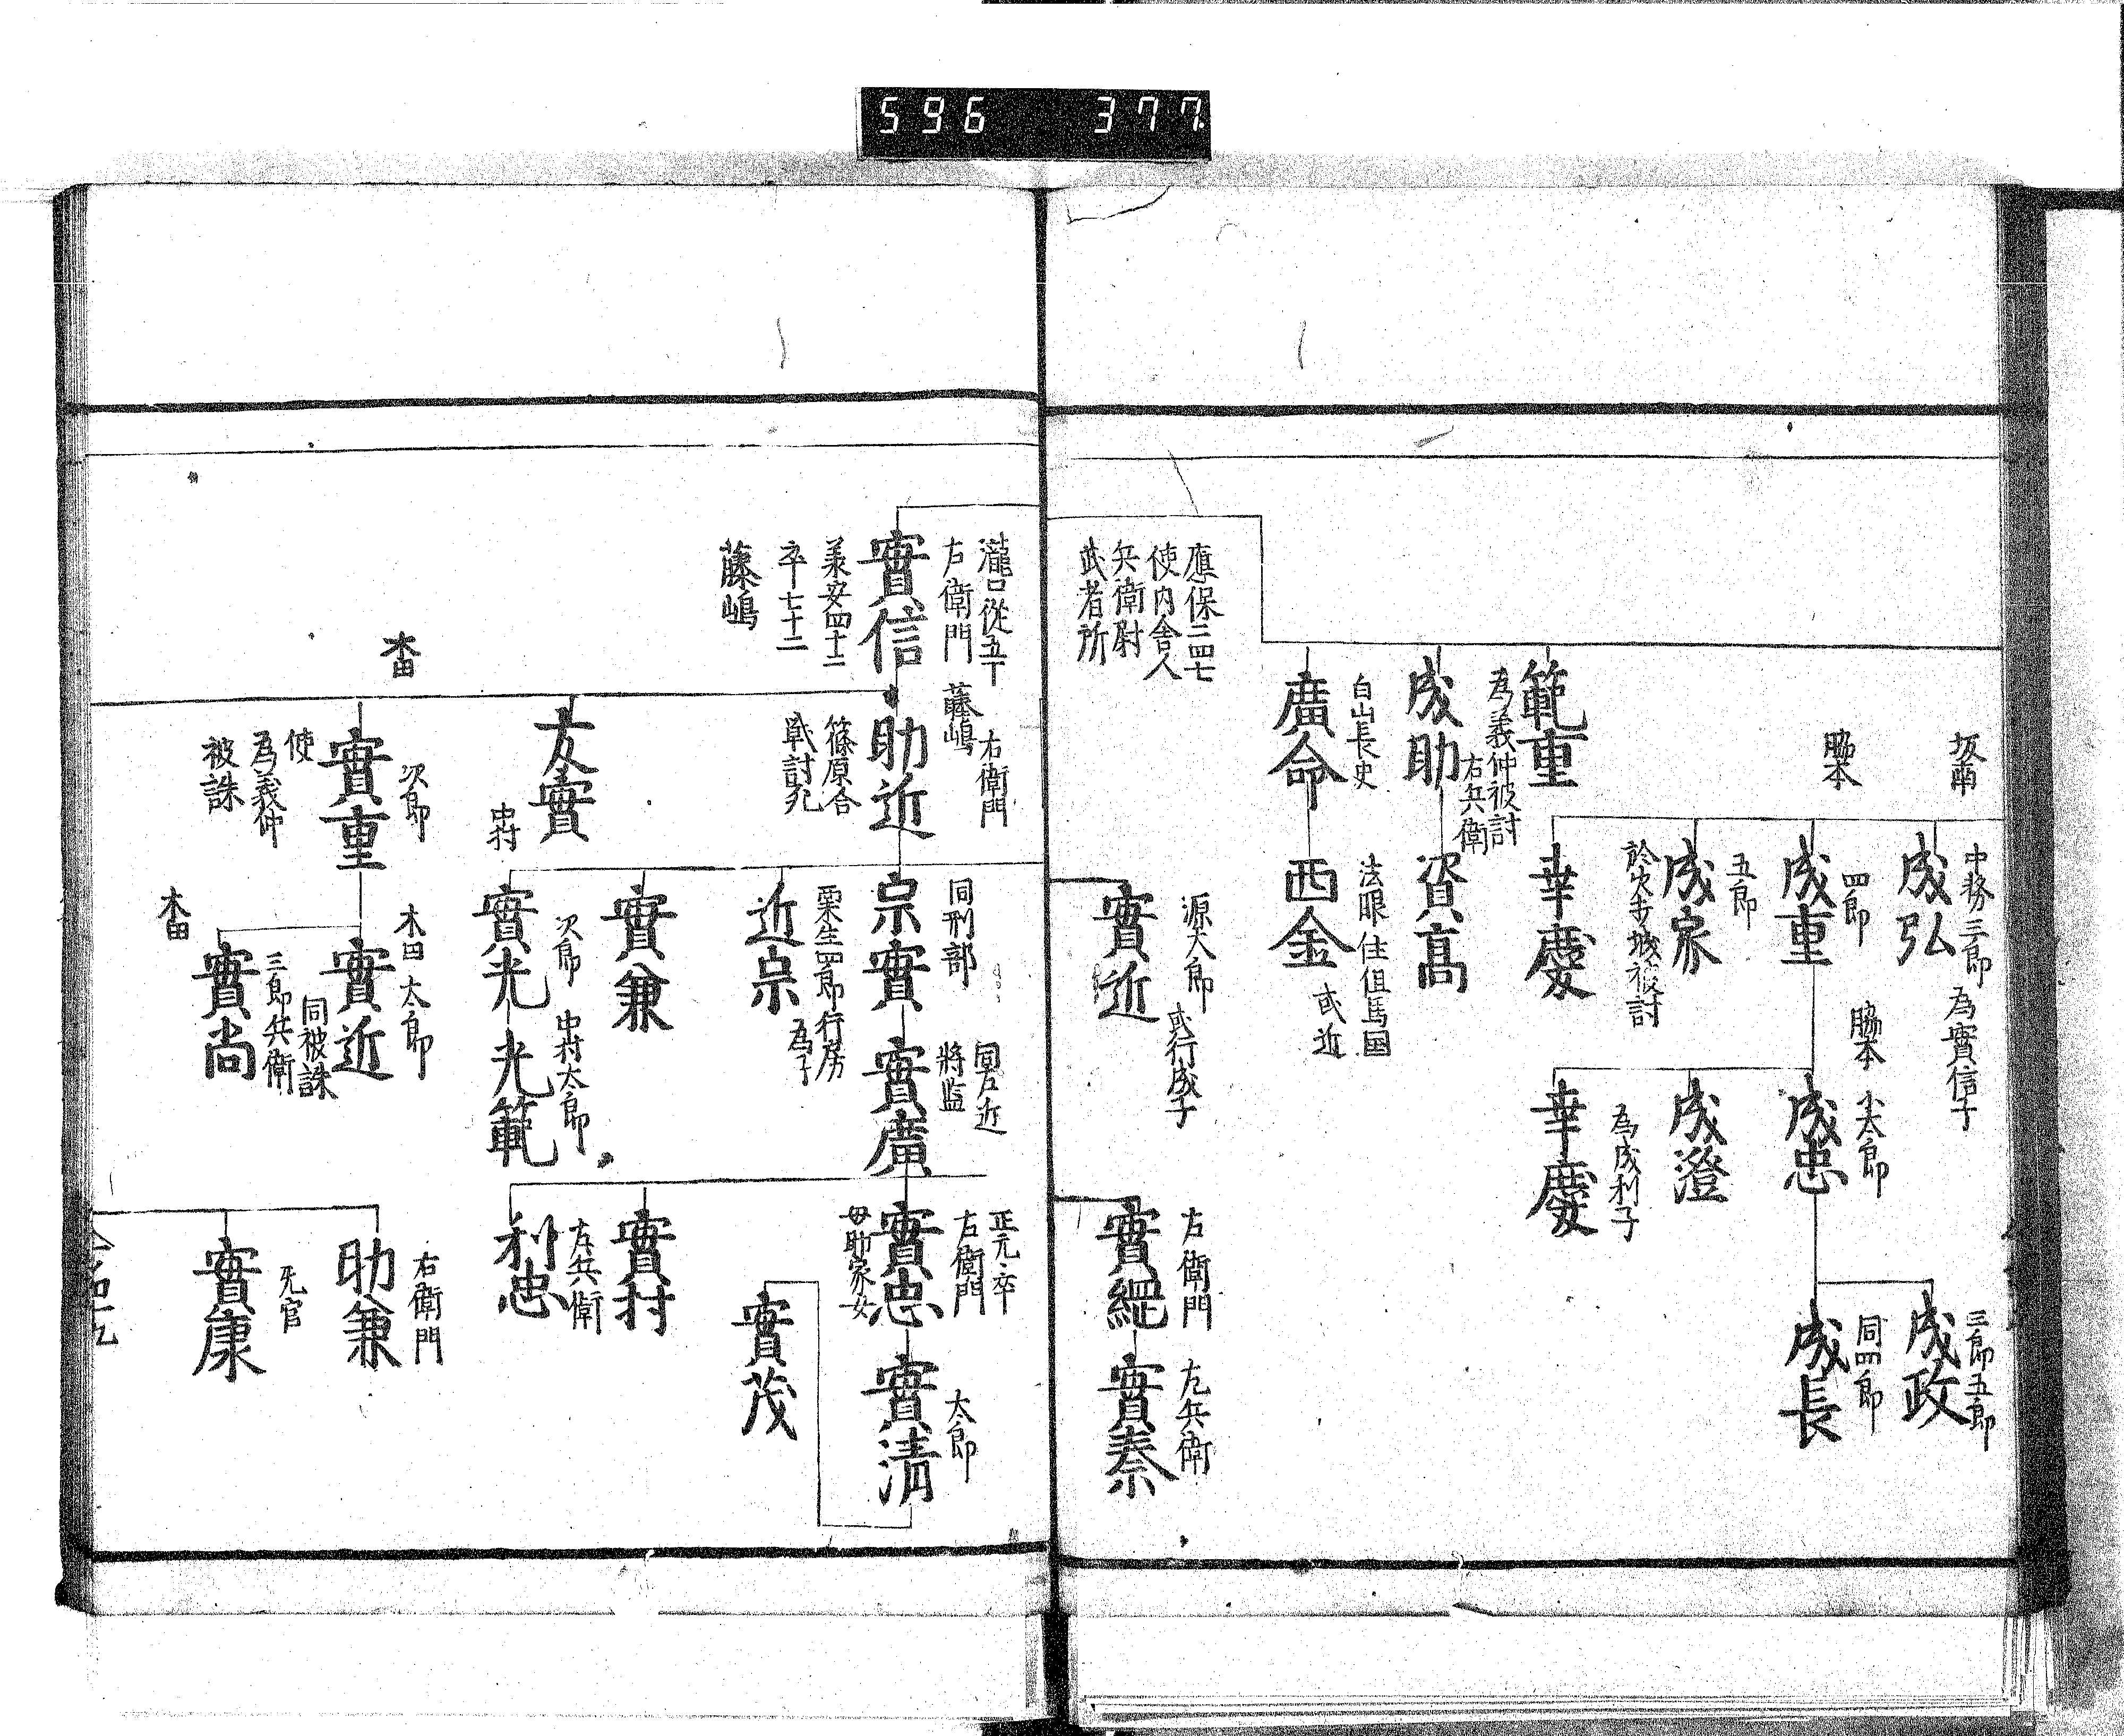 596 377
坂南
中務三郎 為實信子
成弘
三郎五郎
成政
脇本
四郎
成重
脇本 小太郎
成忠
同四郎
成長
五郎
成家
於火打城被討
成澄
幸慶
為成利子
幸慶
範重
為義仲被討
右兵衛
成助
資高
白山長史
廣命
法眼住但馬国
西金
或近
應保二四七
使内舎人
兵衛尉
武者所
源太郎
或行成子
實近
右衛門
實綱
左兵衛
實泰
瀧口從五下
右衛門
實信
義安四十二
卒七十二
藤嶋
藤嶋
右衛門
助近
篠原合
戦討死
同刑部
宗實
同右近
將監
實廣
正元・卒
右衛門
實忠
母助家女
太郎
實清
實茂
栗生四郎行房
為子
近宗
實兼
實村
左兵衛
利忠
友實
中村
次郎
實光
中村太郎
光範
木田
次郎
實重
使
為義仲
被誅
木田 太郎
實近
同被誅
三郎兵衛
實尚
木田
右衛門
助兼
无官
實康